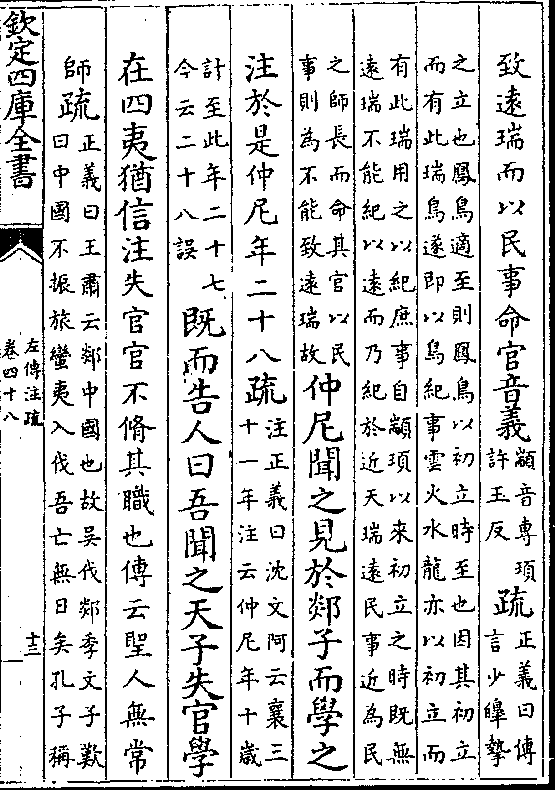 致遠瑞而以民事命官音義顓音專頊許玉反疏正義曰傳言少皥摯
之立也鳳鳥適至則鳳鳥以初立時至也因其初立
而有此瑞鳥遂即以鳥紀事雲火水龍亦以初立而
有此瑞用之以紀庶事自顓頊以來初立之時既無
遠瑞不能紀以遠而乃紀於近天瑞遠民事近為民
之師長而命其官以民事則為不能致遠瑞故仲尼聞之見於郯子而學之
注於是仲尼年二十八疏注正義曰沈文阿云襄三十一年注云仲尼年十歲
計至此年二十七今云二十八誤既而告人曰吾聞之天子失官學
在四夷猶信注失官官不脩其職也傳云聖人無常
師疏正義曰王肅云郯中國也故吳伐郯季文子歎曰中國不振旅蠻夷入伐吾亡無日矣孔子稱
欽定四庫全書
左傳注疏
卷四十八
十三